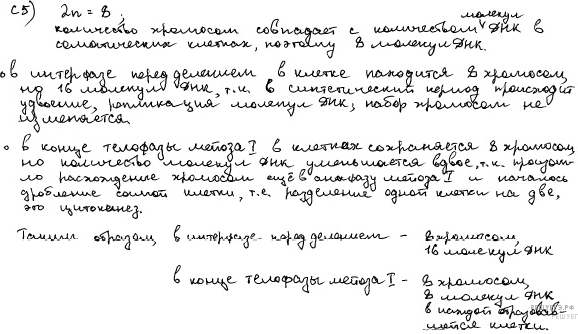 С5) 2n = 8;
количество хромосом совпадает с количеством молекул ДНК в
соматических клетках, поэтому 8 молекул ДНК.
в интерфазе перед делением в клетке находится 8 хромосом,
но 16 молекул ДНК, т.к. в синтетический период происходит
удвоение, репликация молекул ДНК, набор хромосом не
изменяется.
в конце телофазы мейоза I в клетках сохраняется 8 хромосом,
но количество молекул ДНК уменьшается вдвое, т.к. произош-
ло расхождение хромосом ещё в анафазу мейоза I и началось
дробление самой клетки, т.е. разделение одной клетки на две,
это цитокинез.
Таким образом, в интерфазе перед делением - 8 хромосом,
16 молекул ДНК
в конце телофазы мейоза I - 8 хромосом,
8 молекул ДНК
в каждой образовав-
шейся клетки.